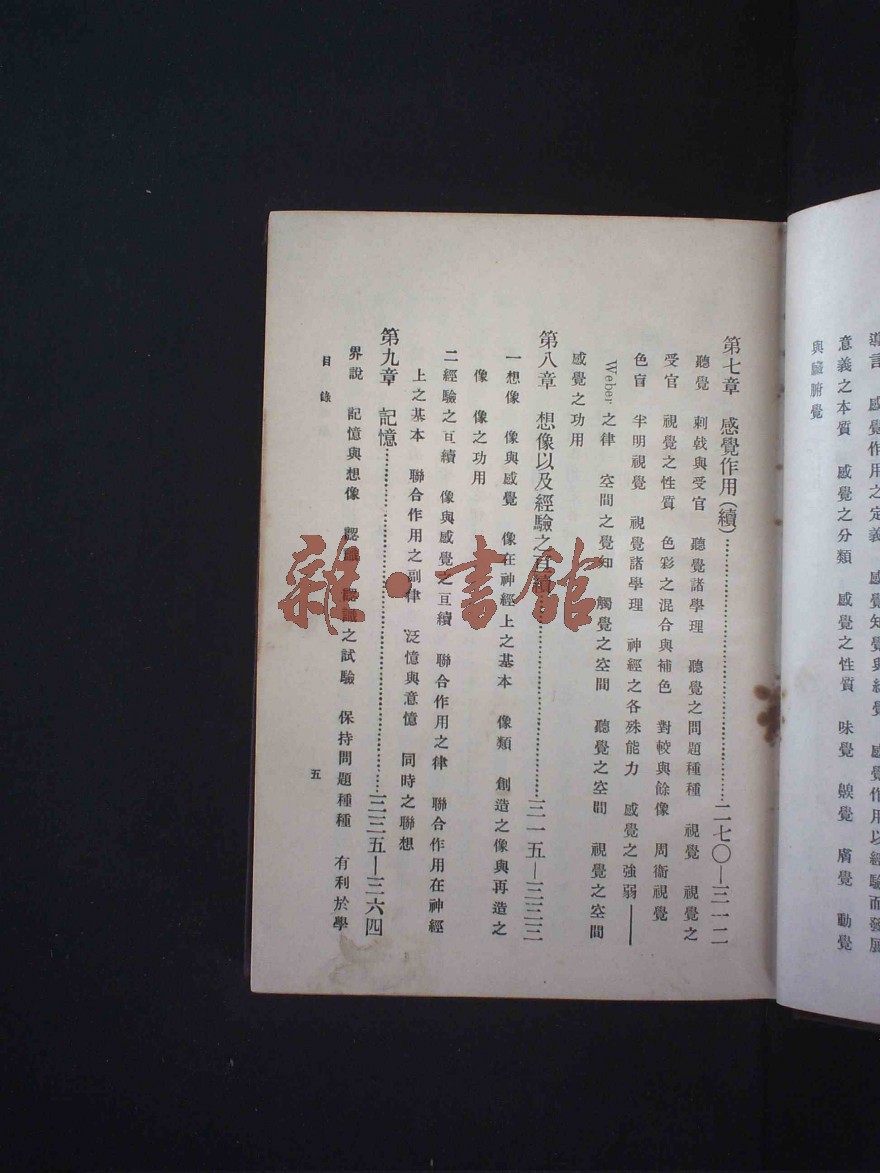 導言 感覺作用之定義 感覺知覺與經覺 感覺作用以經驗而發展
意義之本質 感覺之分類 感覺之性質 味覺 嗅覺 膚覺 動覺
與臟腑覺
第七章 感覺作用(續)……二七〇—三一二
聽覺 刺戟與受官 聽覺諸學理 聽覺之問題種種 視覺 視覺之
受官 視覺之性質 色彩之混合與補色 對較與餘像 周衞視覺
色盲 半明視覺 視覺諸學理 神經之各殊能力 感覺之強弱——
Weber 之律 空間之覺知 觸覺之空間 聽覺之空間 視覺之空間
感覺之功用
第八章 想像以及經驗之亙續……三一五—三三三
一想像 像與感覺 像在神經上之基本 像類 創造之像與再造之
像 像之功用
二經驗之亙續 像與感覺之亙續 聯合作用之律 聯合作用在神經
上之基本 聯合作用之副律 泛憶與意憶 同時之聯想
第九章 記憶……三三五—三六四
界說 記憶與想像 認識 認識之試驗 保持問題種種 有利於學
目錄
五
雜·書館